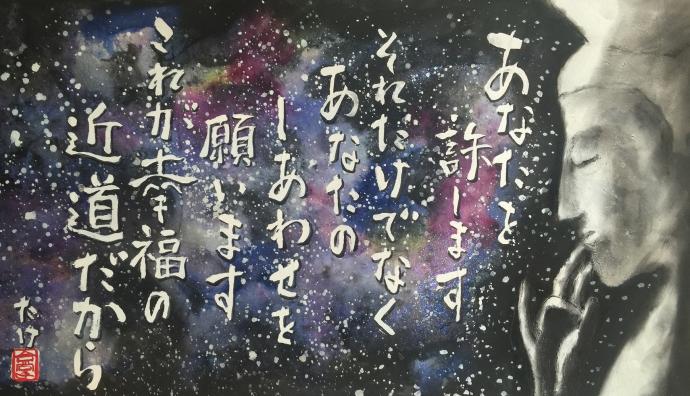 あなたを
許します
それだけでなく
あなたの
しあわせを
願います
これが幸福の
近道だから
たけ